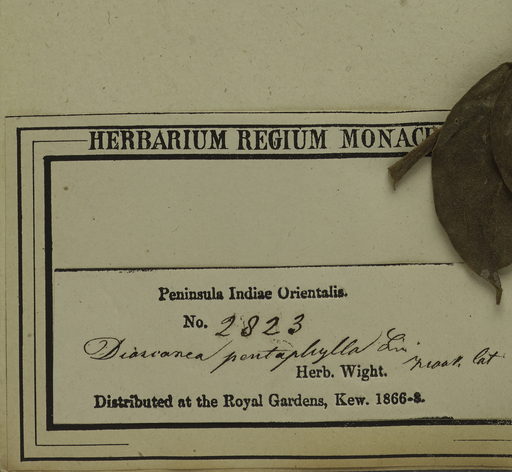 HERBARIUM REGIUM MONAC
Peninsula Indiae Orientalis.
No. 2823
Dioscorea pentaphylla Lin
Herb. Wight.
Distributed at the Royal Gardens, Kew. 1866-8.